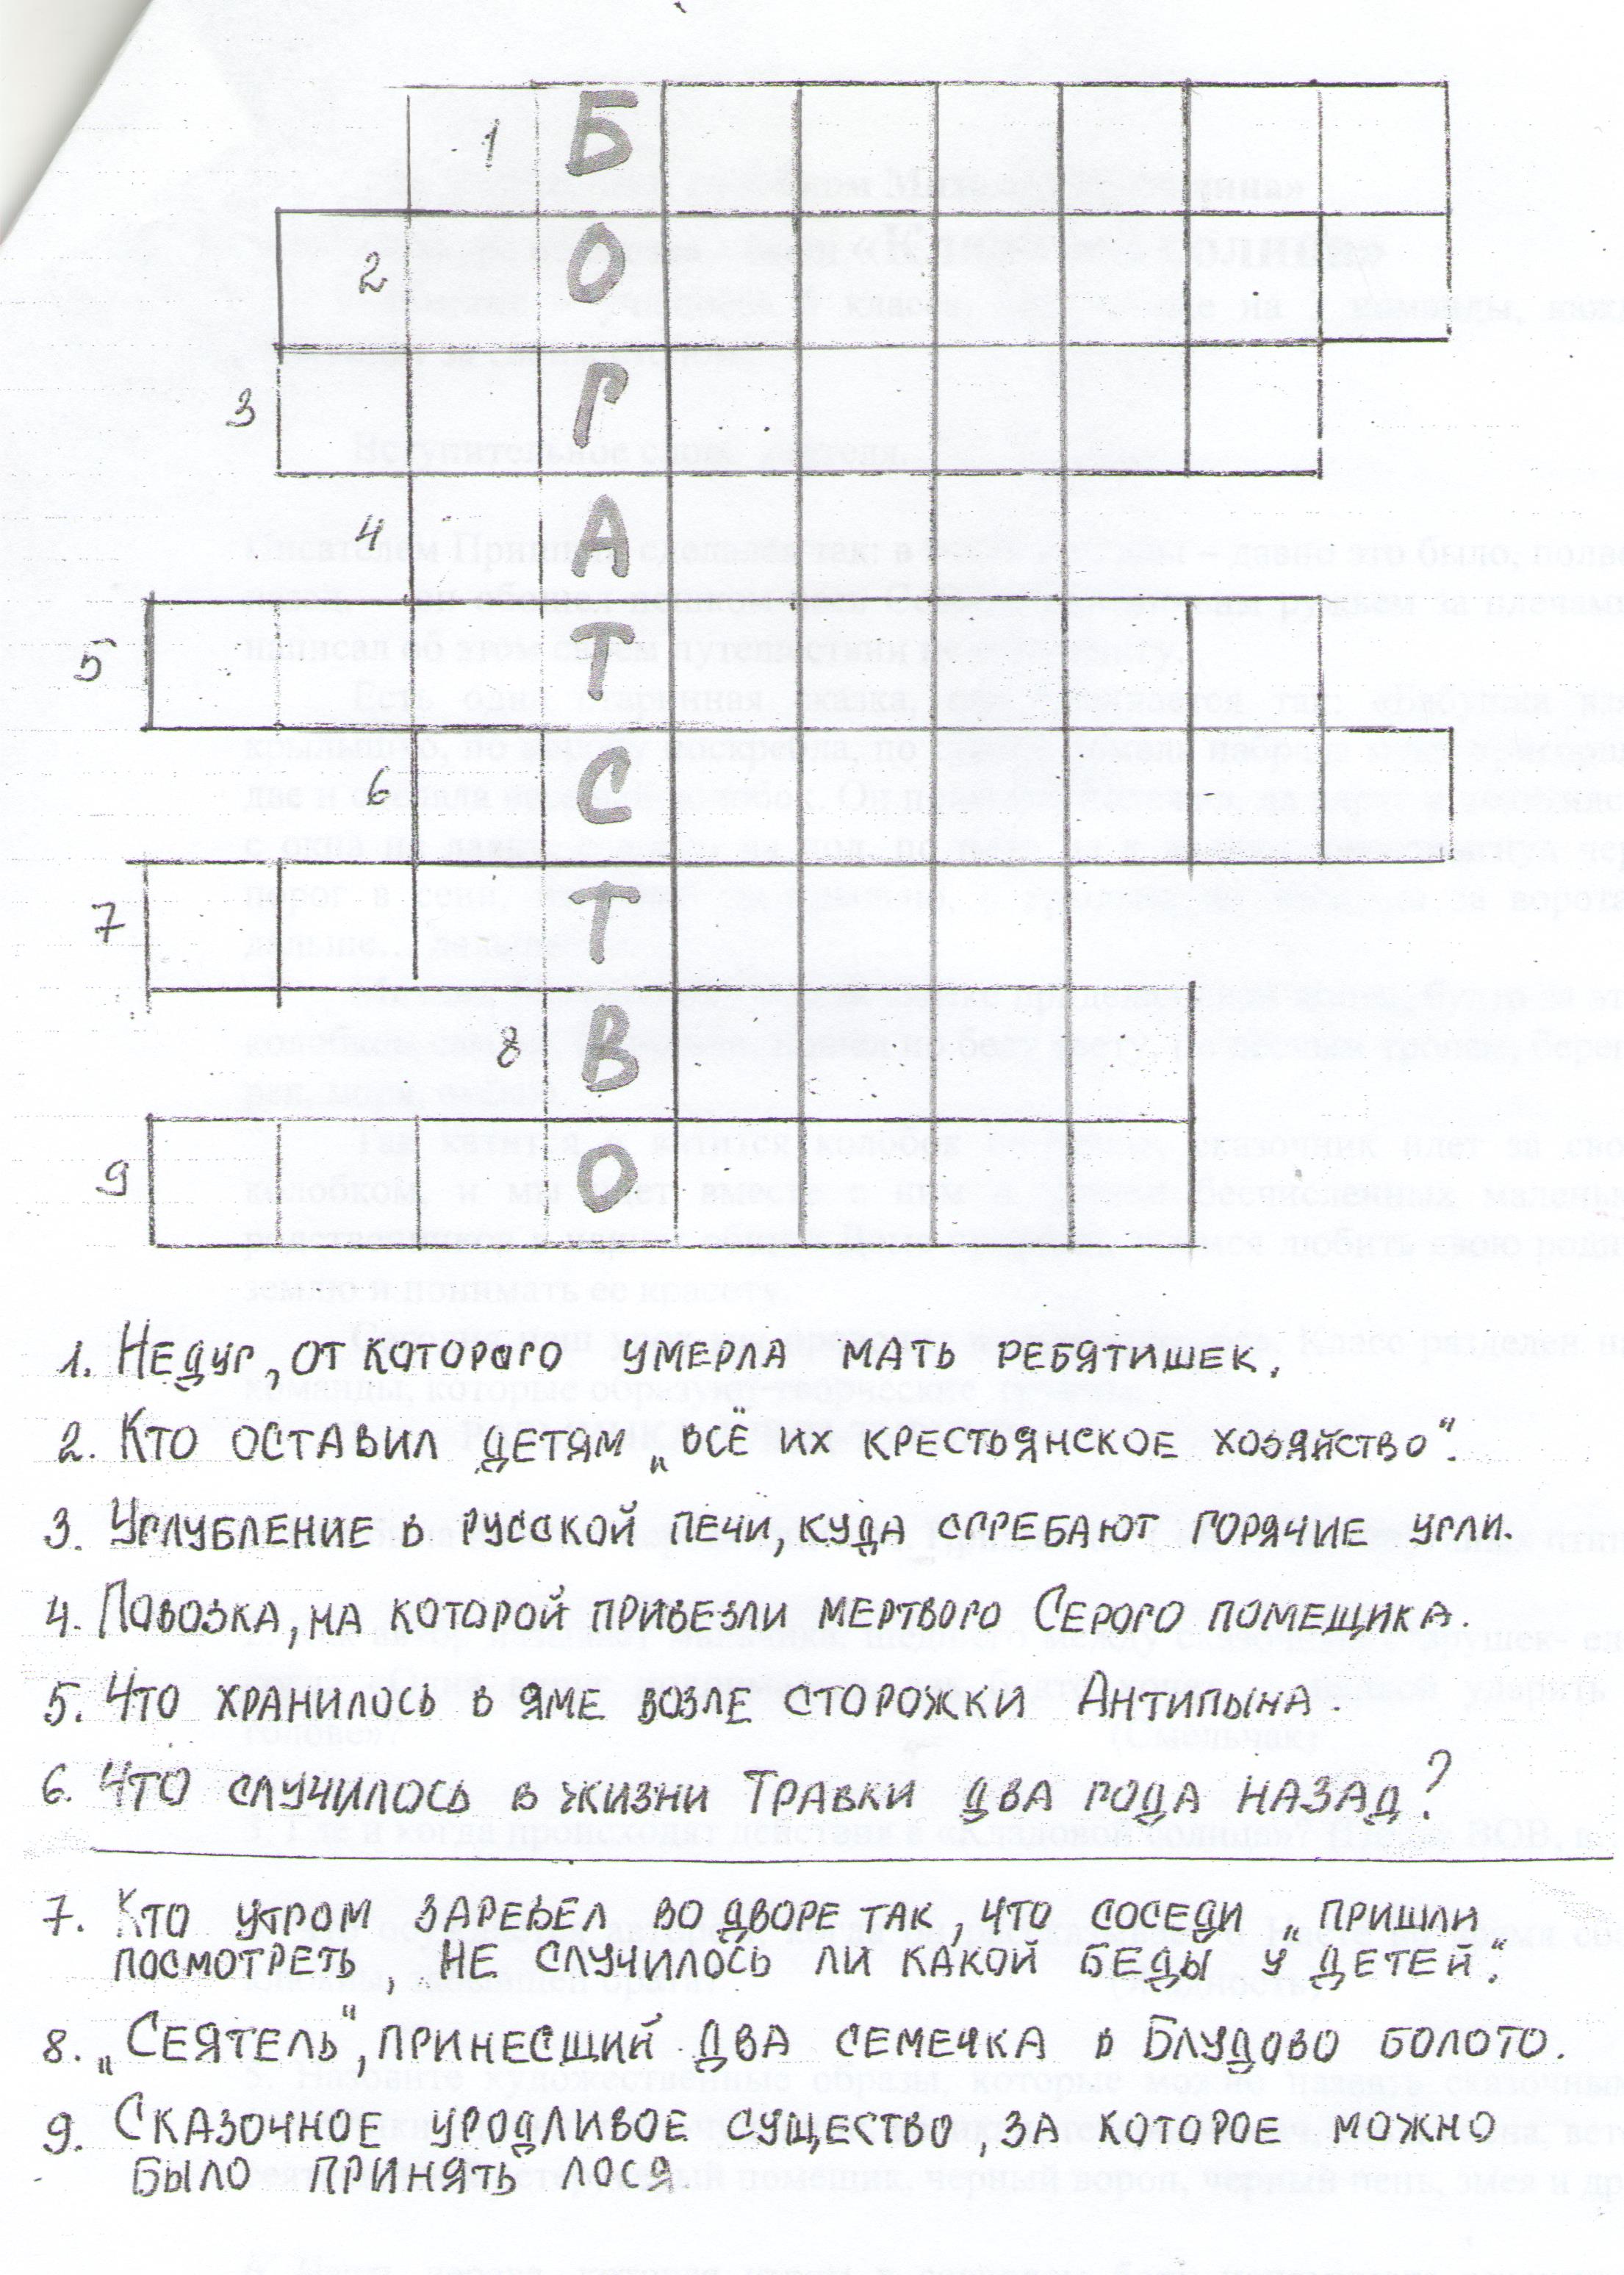 1 Б
2 О
3 Р
4 А
5 Т
6 С
7 Т
8 В
9 О
1. Недуг, от которого умерла мать ребятишек.
2. Кто оставил детям „всё их крестьянское хозяйство".
3. Углубление в русской печи, куда сгребают горячие угли.
4. Повозка, на которой привезли мертвого Серого помещика.
5. Что хранилось в яме возле сторожки Антипыча.
6. Что случилось в жизни Травки два года назад?
7. Кто утром заревел во дворе так, что соседи „пришли
посмотреть, не случилось ли какой беды у детей".
8. „Сеятель", принесший два семечка в Блудово болото.
9. Сказочное уродливое существо, за которое можно
было принять лося.